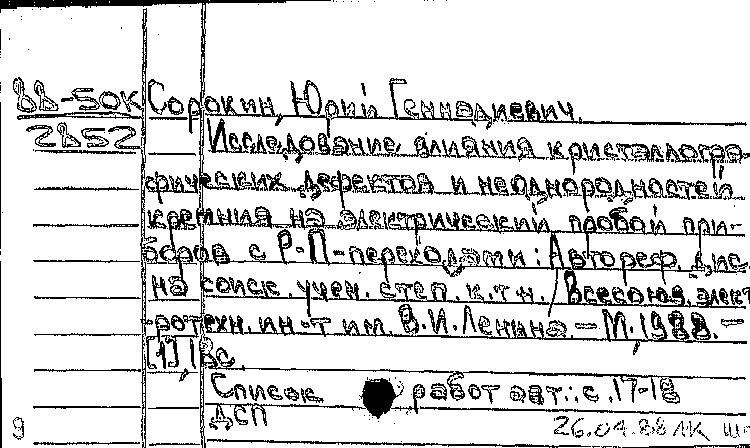 88-50К Сорокин, Юрий Геннадиевич.
2852 Исследование влияния кристаллогра-
фических дефектов и неоднородностей
кремния на электрический пробой при-
боров с P-П-переходами: Автореф. дис.
на соиск. учен. степ. к.т.н. / Всесоюз. элект
ротехн. ин-т им. В.И. Ленина. — М., 1988. —
[1], 18с.
Список работ авт.: с. 17-18
ДСП
9 26.04.88 ЛК